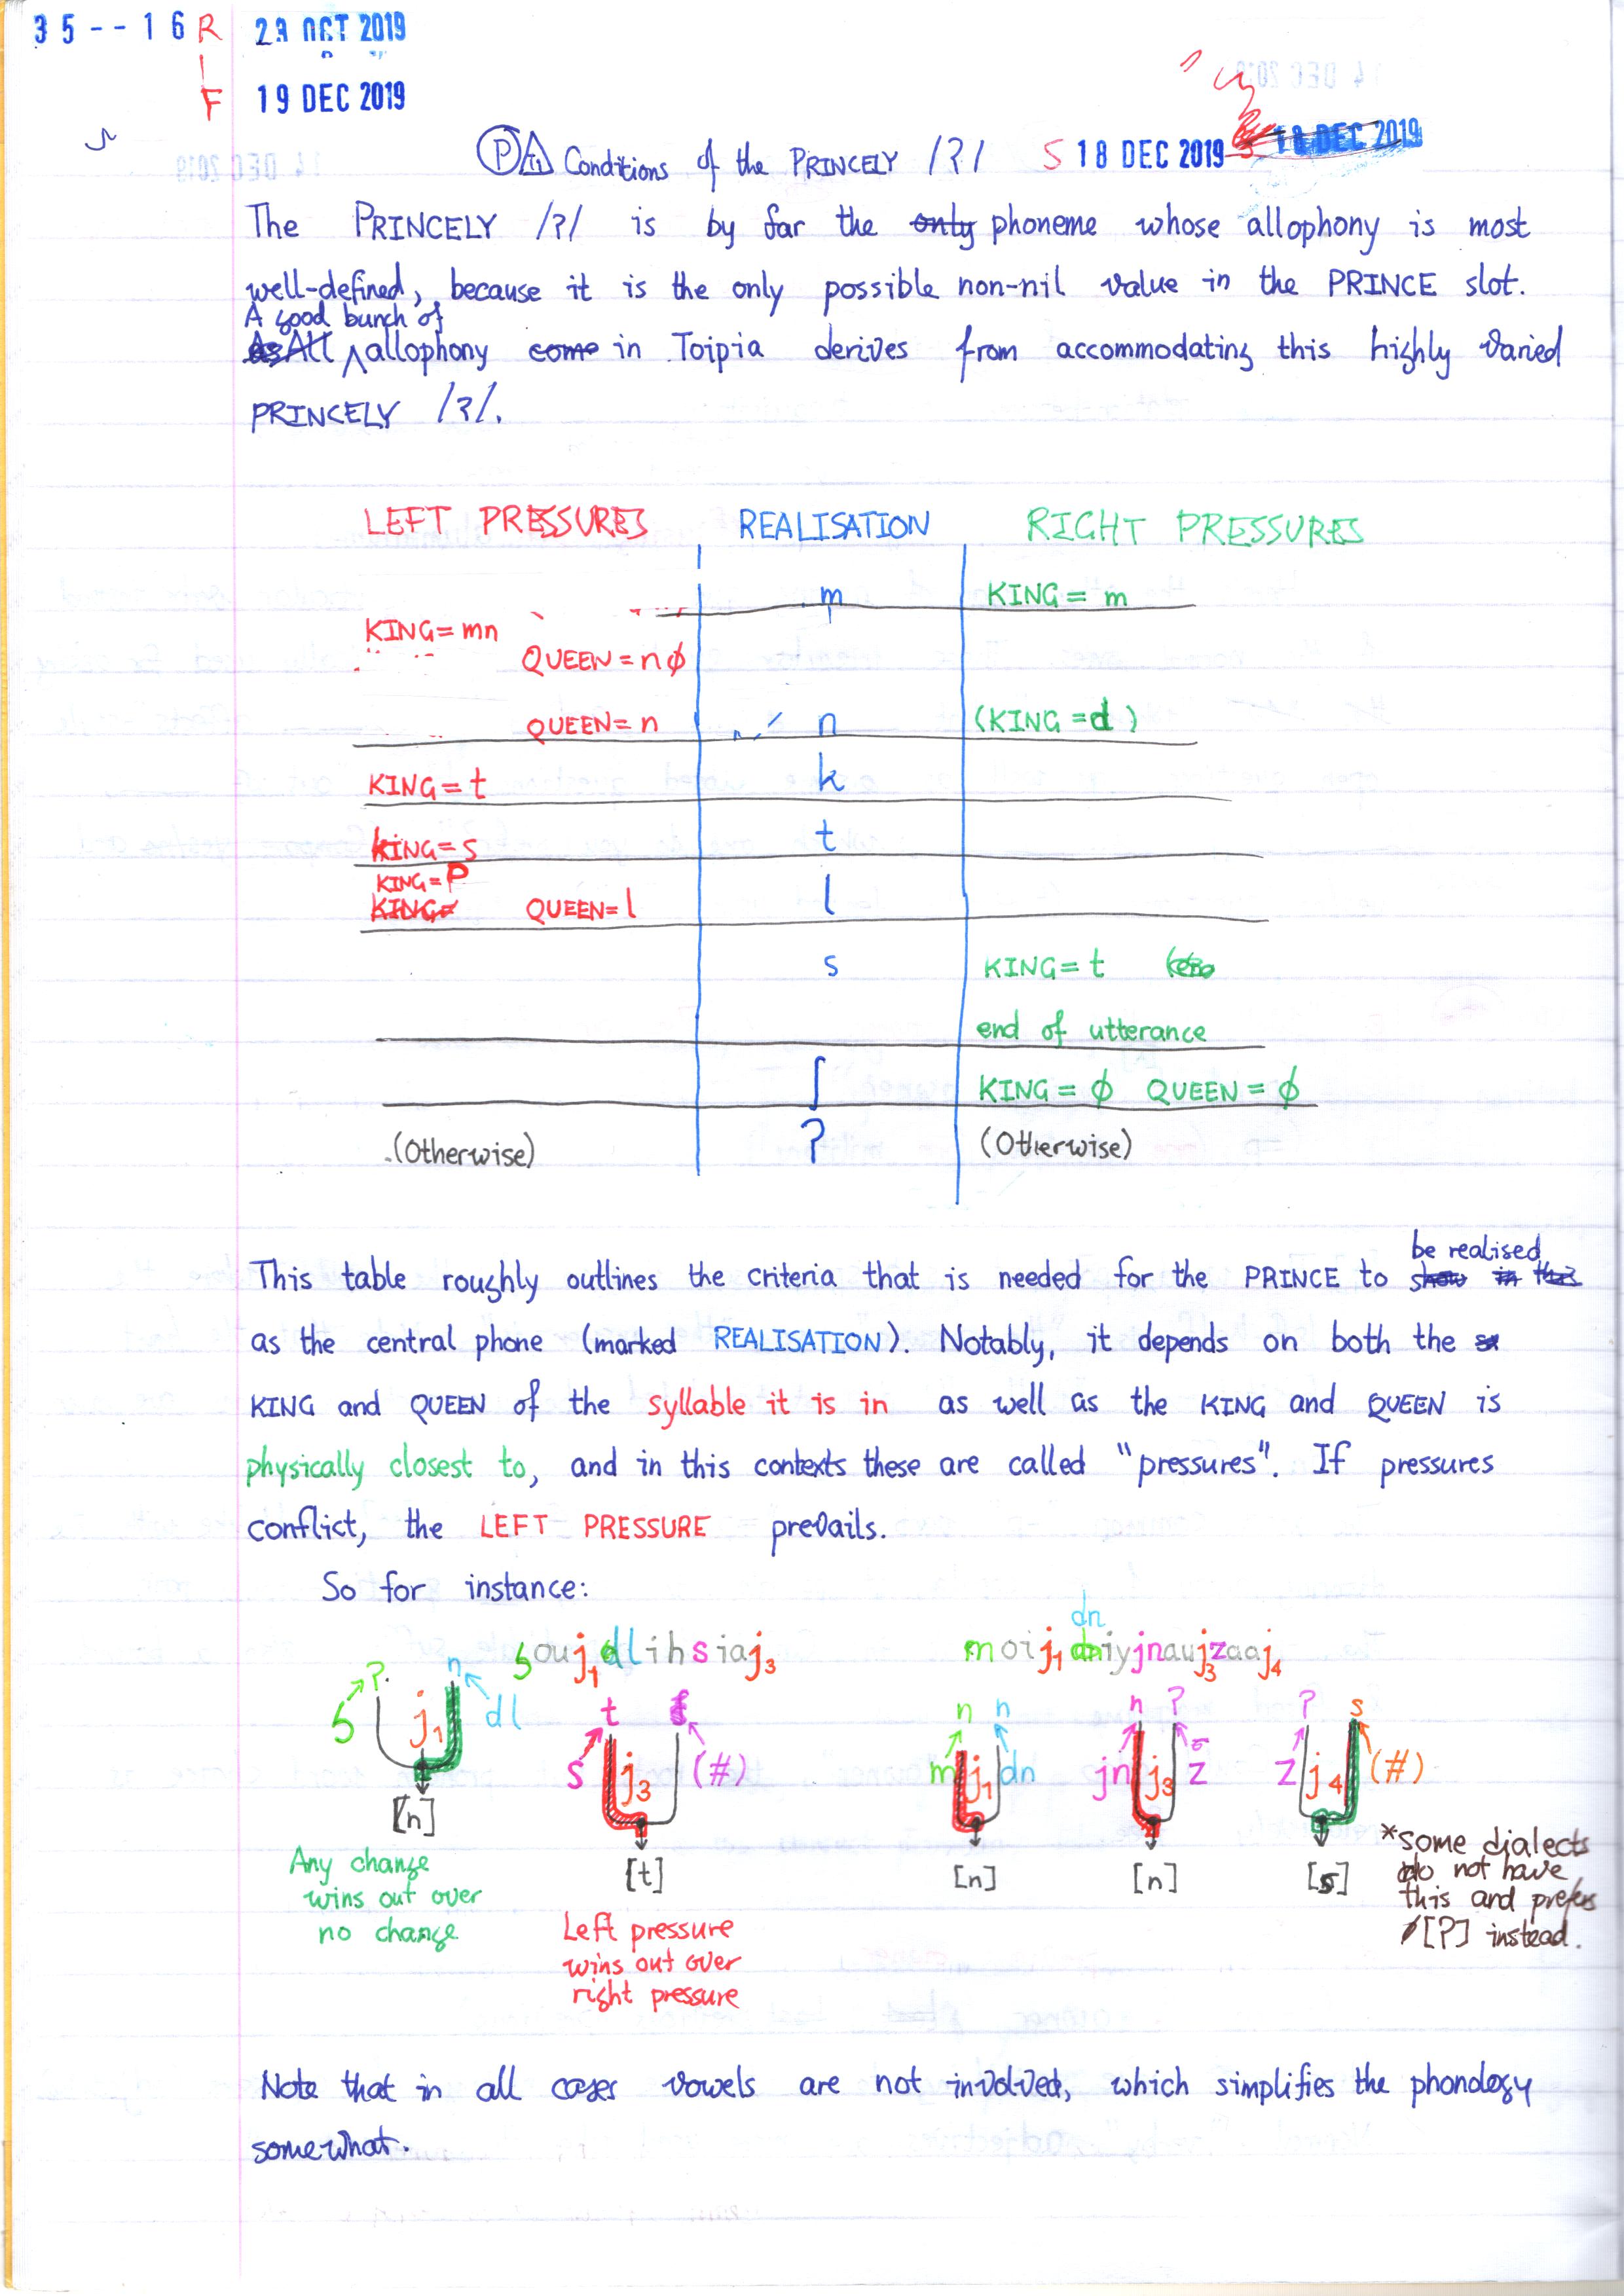 35--16 R 29 OCT 2019
F 19 DEC 2019
Conditions of the PRINCELY /ʔ/ S 18 DEC 2019 18 DEC 2019
The PRINCELY /ʔ/ is by far the only phoneme whose allophony is most
well-defined, because it is the only possible non-nil value in the PRINCE slot.
A good bunch of
As All ^ allophony come in Toipia derives from accommodating this highly varied
PRINCELY /ʔ/.
LEFT PRESSURES REALISATION RIGHT PRESSURES
m KING = m
KING = mn
QUEEN = n ϕ
QUEEN = n n (KING = d)
KING = t k
KING = s t
KING = P
KING= QUEEN = l l
s KING = t
end of utterance
ʃ KING = ϕ QUEEN = ϕ
(Otherwise) ʔ (Otherwise)
be realised
This table roughly outlines the criteria that is needed for the PRINCE to show in this
as the central phone (marked REALISATION). Notably, it depends on both the
KING and QUEEN of the syllable it is in as well as the KING and QUEEN is
physically closest to, and in this contexts these are called "pressures". If pressures
conflict, the LEFT PRESSURE prevails.
So for instance:
dn
souj₁dlihsiaj₃ moij₁dniyjnaujzaaj₄
ʔ n t n n n ʔ ʔ s
j₁ dl
s j₃ (#) m j₁ dn jn j₃ z z j₄ (#)
[n] [t] [n] [n] [s]
Any change
wins out over
no change
Left pressure
wins out over
right pressure
*some dialects
do not have
this and prefer
[ʔ] instead.
Note that in all cases vowels are not involved, which simplifies the phonology
somewhat.